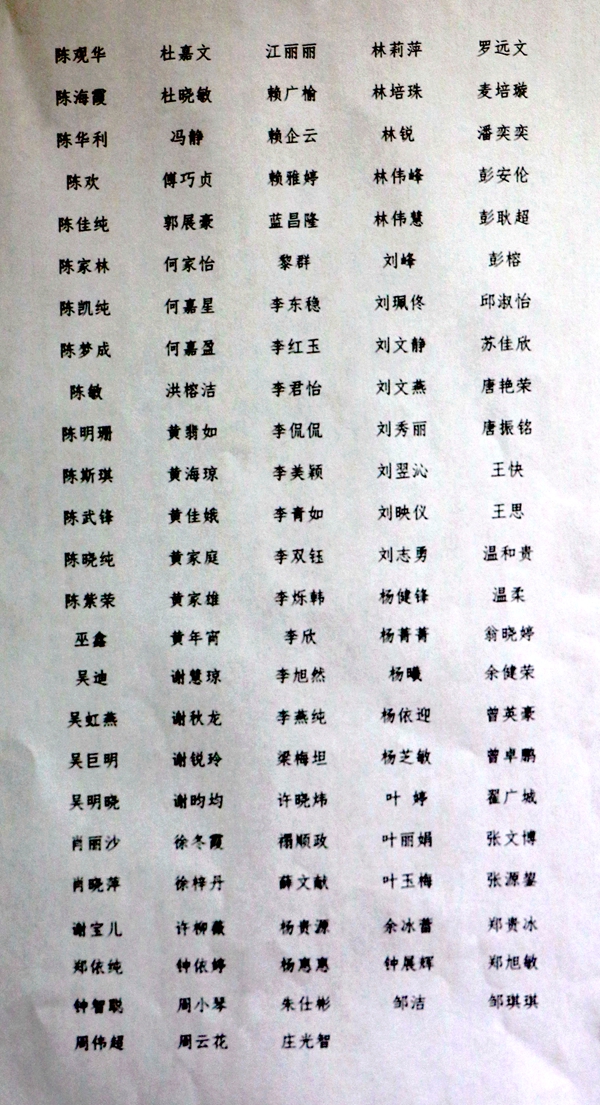 陈观华 杜嘉文 江丽丽 林莉萍 罗远文
陈海霞 杜晓敏 赖广榆 林培珠 麦培璇
陈华利 冯静 赖企云 林锐 潘奕奕
陈欢 傅巧贞 赖雅婷 林伟峰 彭安伦
陈佳纯 郭展豪 蓝昌隆 林伟慧 彭耿超
陈家林 何家怡 黎群 刘峰 彭榕
陈凯纯 何嘉星 李东稳 刘珮佟 邱淑怡
陈梦成 何嘉盈 李红玉 刘文静 苏佳欣
陈敏 洪榕洁 李君怡 刘文燕 唐艳荣
陈明珊 黄翡如 李侃侃 刘秀丽 唐振铭
陈斯琪 黄海琼 李美颖 刘翌沁 王快
陈武锋 黄佳娥 李青如 刘映仪 王思
陈晓纯 黄家庭 李双钰 刘志勇 温和贵
陈紫荣 黄家雄 李烁韩 杨健锋 温柔
巫鑫 黄年宵 李欣 杨菁菁 翁晓婷
吴迪 谢慧琼 李旭然 杨曦 余健荣
吴虹燕 谢秋龙 李燕纯 杨依迎 曾英豪
吴巨明 谢锐玲 梁梅坦 杨芝敏 曾卓鹏
吴明晓 谢昀均 许晓炜 叶 婷 翟广城
肖丽沙 徐冬霞 禤顺政 叶丽娟 张文博
肖晓萍 徐梓丹 薛文献 叶玉梅 张源鋆
谢宝儿 许柳薇 杨贵源 余冰蕾 郑贵冰
郑依纯 钟依婷 杨惠惠 钟展辉 郑旭敏
钟智聪 周小琴 朱仕彬 邹洁 邹琪琪
周伟超 周云花 庄光智